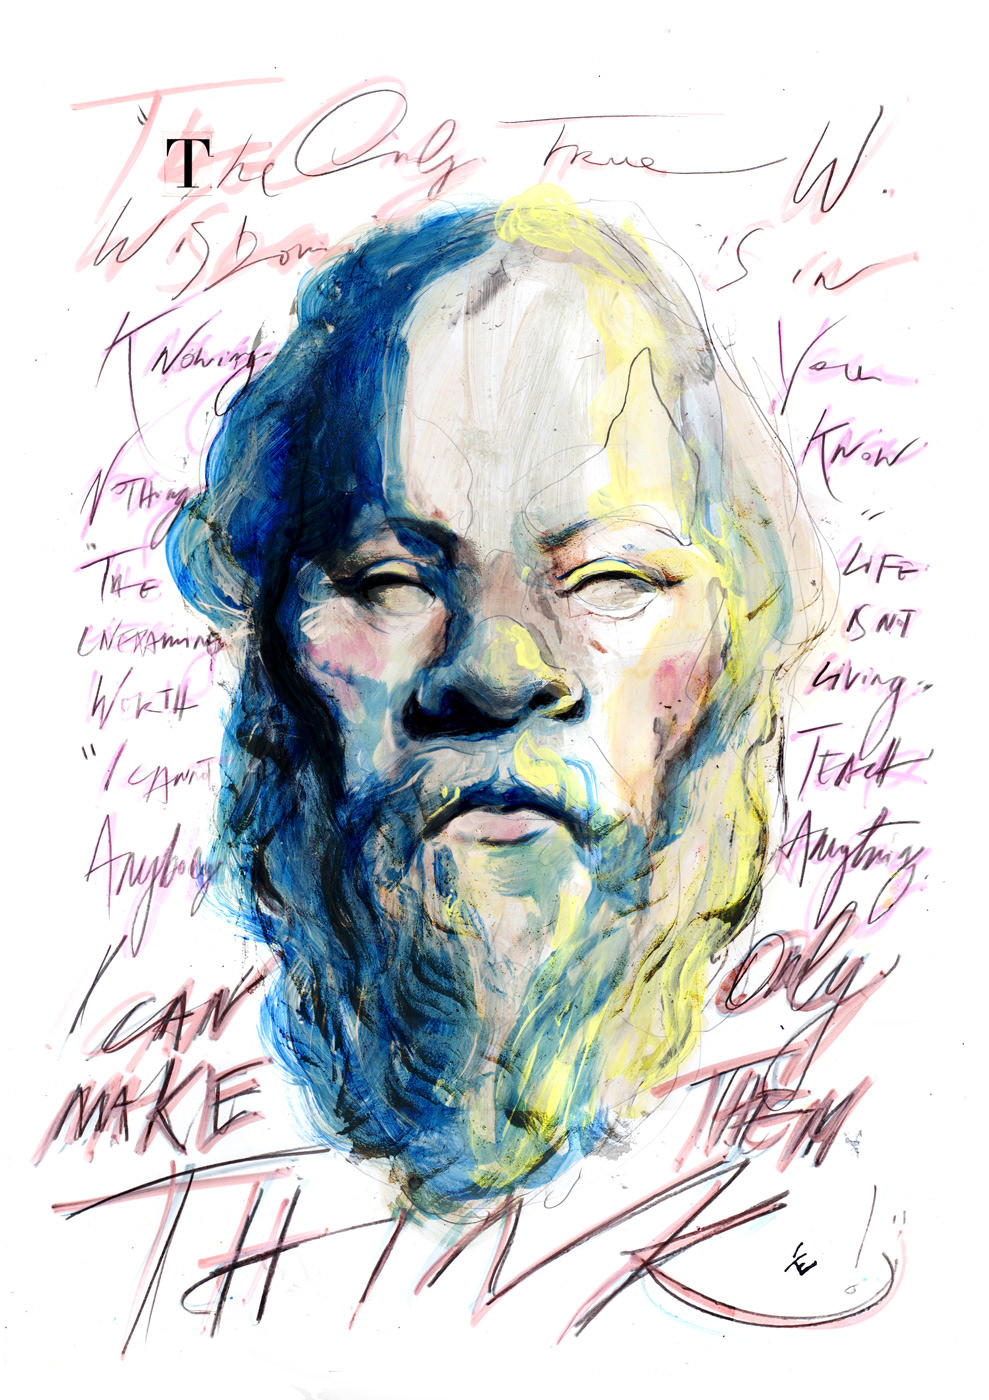 "The Only True W.
Wisdom is in
Knowing You
Know
Nothing"
"THE LIFE
UNEXAMINED IS NOT
WORTH Living."
"I CANNOT TEACH
Anybody Anything.
I CAN Only
MAKE THEM
THINK!"